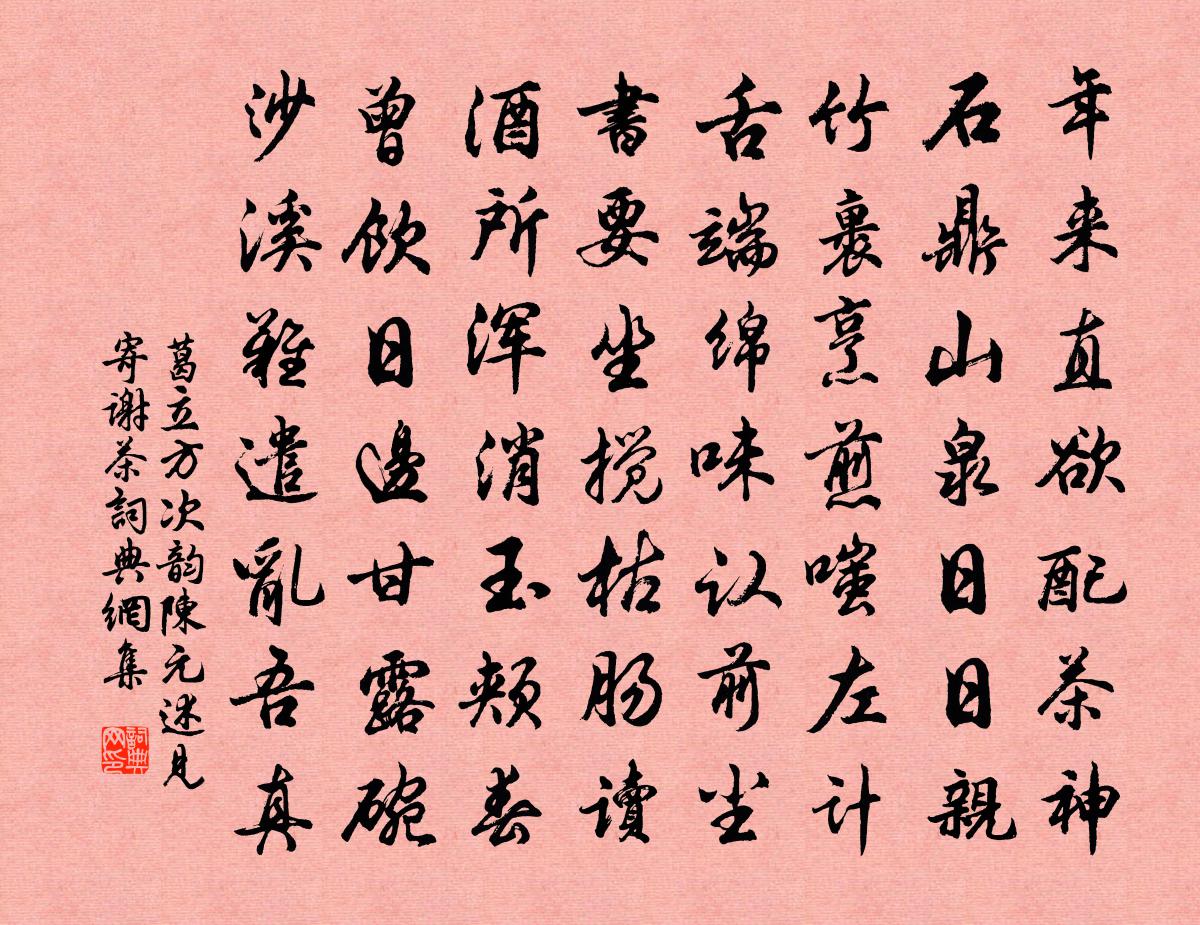 年来直欲配茶神
石鼎山泉日日親
竹裹烹煎嗤左计
舌端绵味认前尘
書要坐搅枯肠讀
酒所浑消玉颊春
曾飲日邊甘露碗
沙溪難遣亂吾真
葛立方次韵陳元述見
寄谢茶詞典網集
詞典网印